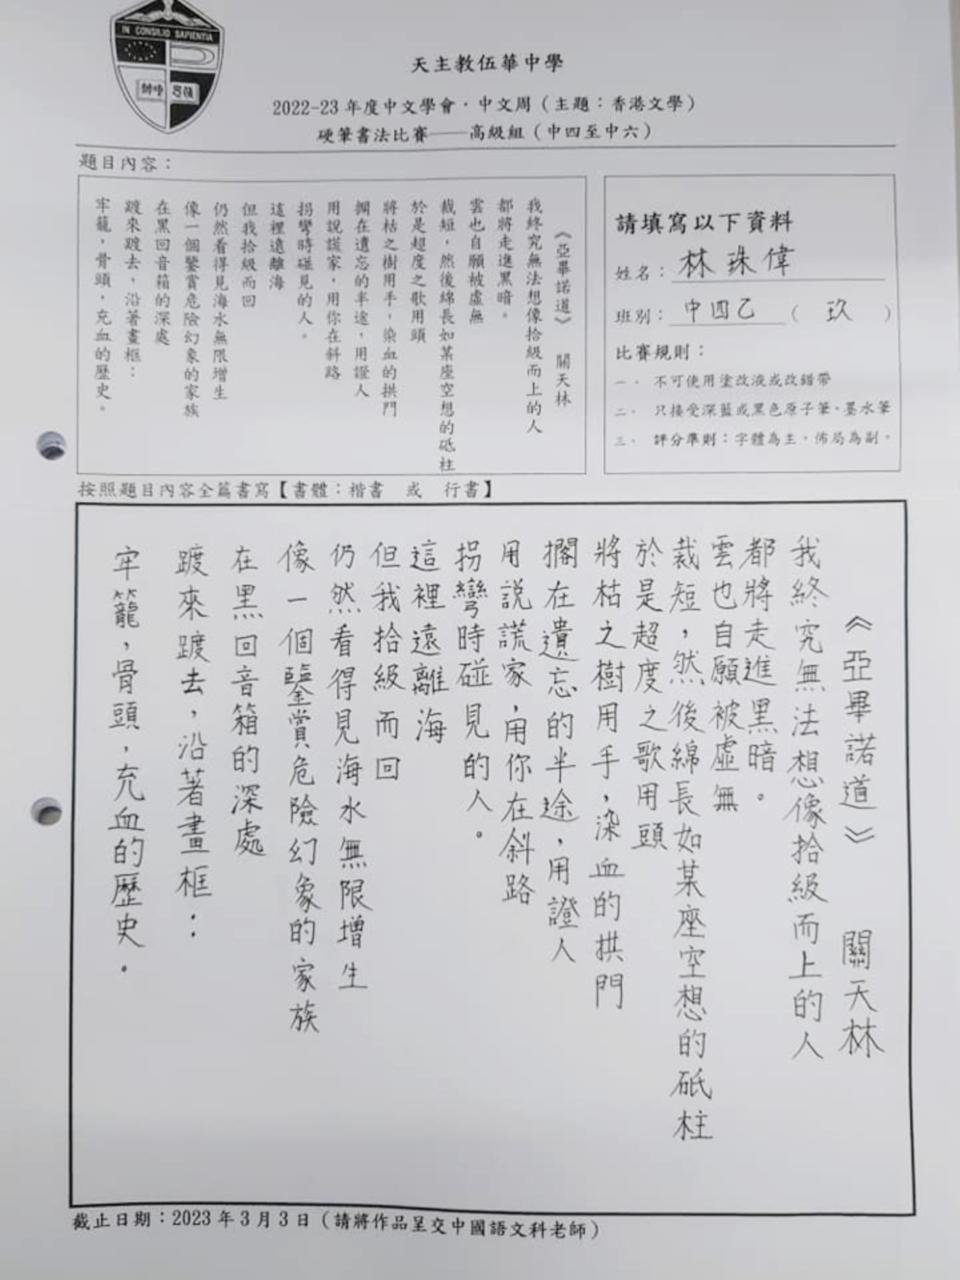 IN CONSILIO SAPIENTIA
天主教伍華中學
2022-23 年度中文學會．中文周（主題：香港文學）
硬筆書法比賽——高級組（中四至中六）
題目內容：
《亞畢諾道》 關天林
我終究無法想像拾級而上的人
都將走進黑暗。
雲也自願被虛無
裁短，然後綿長如某座空想的砥柱
於是超度之歌用頭
將枯之樹用手，染血的拱門
擱在遺忘的半途，用證人
用說謊家，用你在斜路
拐彎時碰見的人。
這裡遠離海
但我拾級而回
仍然看得見海水無限增生
像一個鑒賞危險幻象的家族
在黑回音箱的深處
踱來踱去，沿著畫框：
牢籠，骨頭，充血的歷史。
請填寫以下資料
姓名：林珠偉
班別：中四乙（玖）
比賽規則：
一． 不可使用塗改液或改錯帶
二． 只接受深藍或黑色原子筆、墨水筆
三． 評分準則：字體為主，佈局為副。
按照題目內容全篇書寫【書體：楷書 或 行書】
《亞畢諾道》 關天林
我終究無法想像拾級而上的人
都將走進黑暗。
雲也自願被虛無
裁短，然後綿長如某座空想的砥柱
於是超度之歌用頭
將枯之樹用手，染血的拱門
擱在遺忘的半途，用證人
用說謊家，用你在斜路
拐彎時碰見的人。
這裡遠離海
但我拾級而回
仍然看得見海水無限增生
像一個鑒賞危險幻象的家族
在黑回音箱的深處
踱來踱去，沿著畫框：
牢籠，骨頭，充血的歷史．
截止日期：2023 年 3 月 3 日（請將作品呈交中國語文科老師）